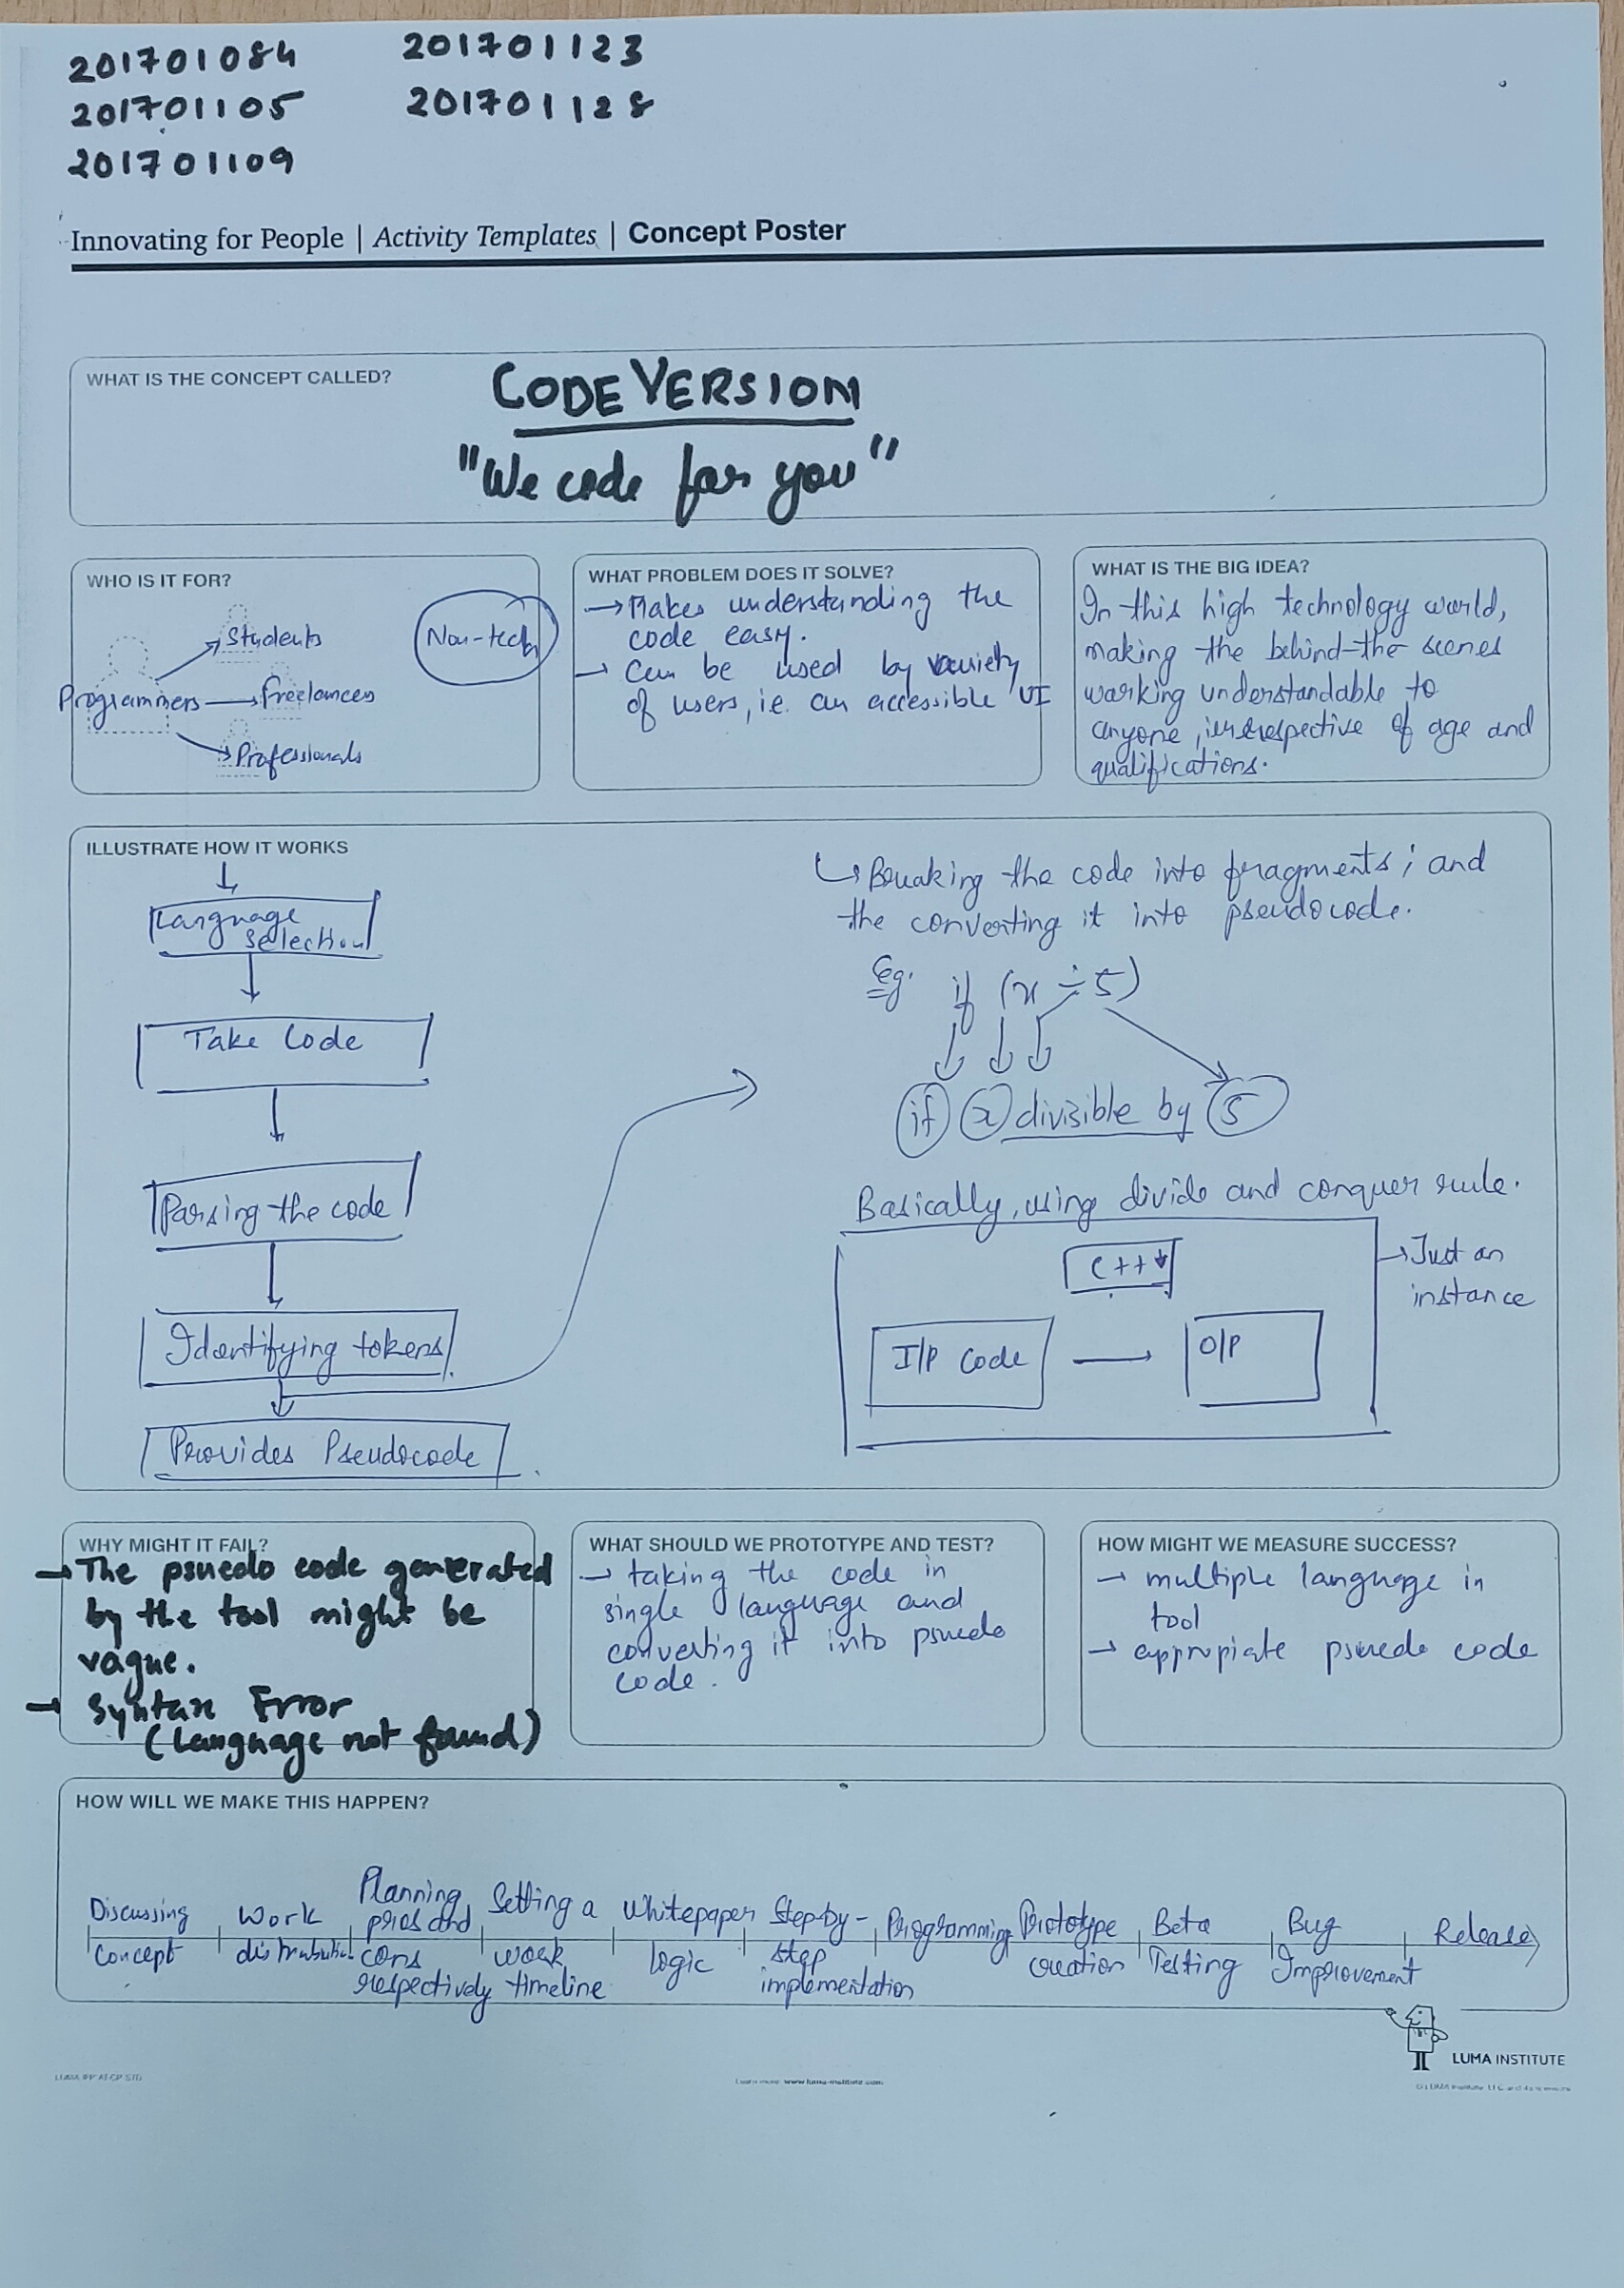 201701084
201701105
201701109
201701123
201701128
Innovating for People | Activity Templates | Concept Poster
WHAT IS THE CONCEPT CALLED?
CODEVERSION
"We code for you"
WHO IS IT FOR?
Programmers
Students
Freelances
Professionals
Non-tech
WHAT PROBLEM DOES IT SOLVE?
→ Makes understanding the
code easy.
→ Can be used by variety
of users, i.e. an accessible UI
WHAT IS THE BIG IDEA?
In this high technology world,
making the behind-the scenes
working understandable to
anyone, irrespective of age and
qualifications.
ILLUSTRATE HOW IT WORKS
Language
Selection
Take Code
Parsing the code
Identifying tokens
Provides Pseudocode
↳ Breaking the code into fragments; and
the converting it into pseudocode.
Eg. if (x ÷ 5)
if x divisible by 5
Basically, using divide and conquer rule.
C++
I/P Code → O/P
→ Just an
instance
WHY MIGHT IT FAIL?
→ The psuedo code generated
by the tool might be
vague.
→ Syntax Error
(Language not found)
WHAT SHOULD WE PROTOTYPE AND TEST?
→ taking the code in
single language and
converting it into psuedo
code.
HOW MIGHT WE MEASURE SUCCESS?
→ multiple language in
tool
→ appropiate psuedo code
HOW WILL WE MAKE THIS HAPPEN?
Discussing
Concept
Work
distribution
Planning
pros and
cons
respectively
Setting a
work
timeline
Whitepaper
logic
Step-by-
step
implementation
Programming
Prototype
creation
Beta
Testing
Bug
Improvement
Release
LUMA INSTITUTE
Learn more: www.luma-institute.com